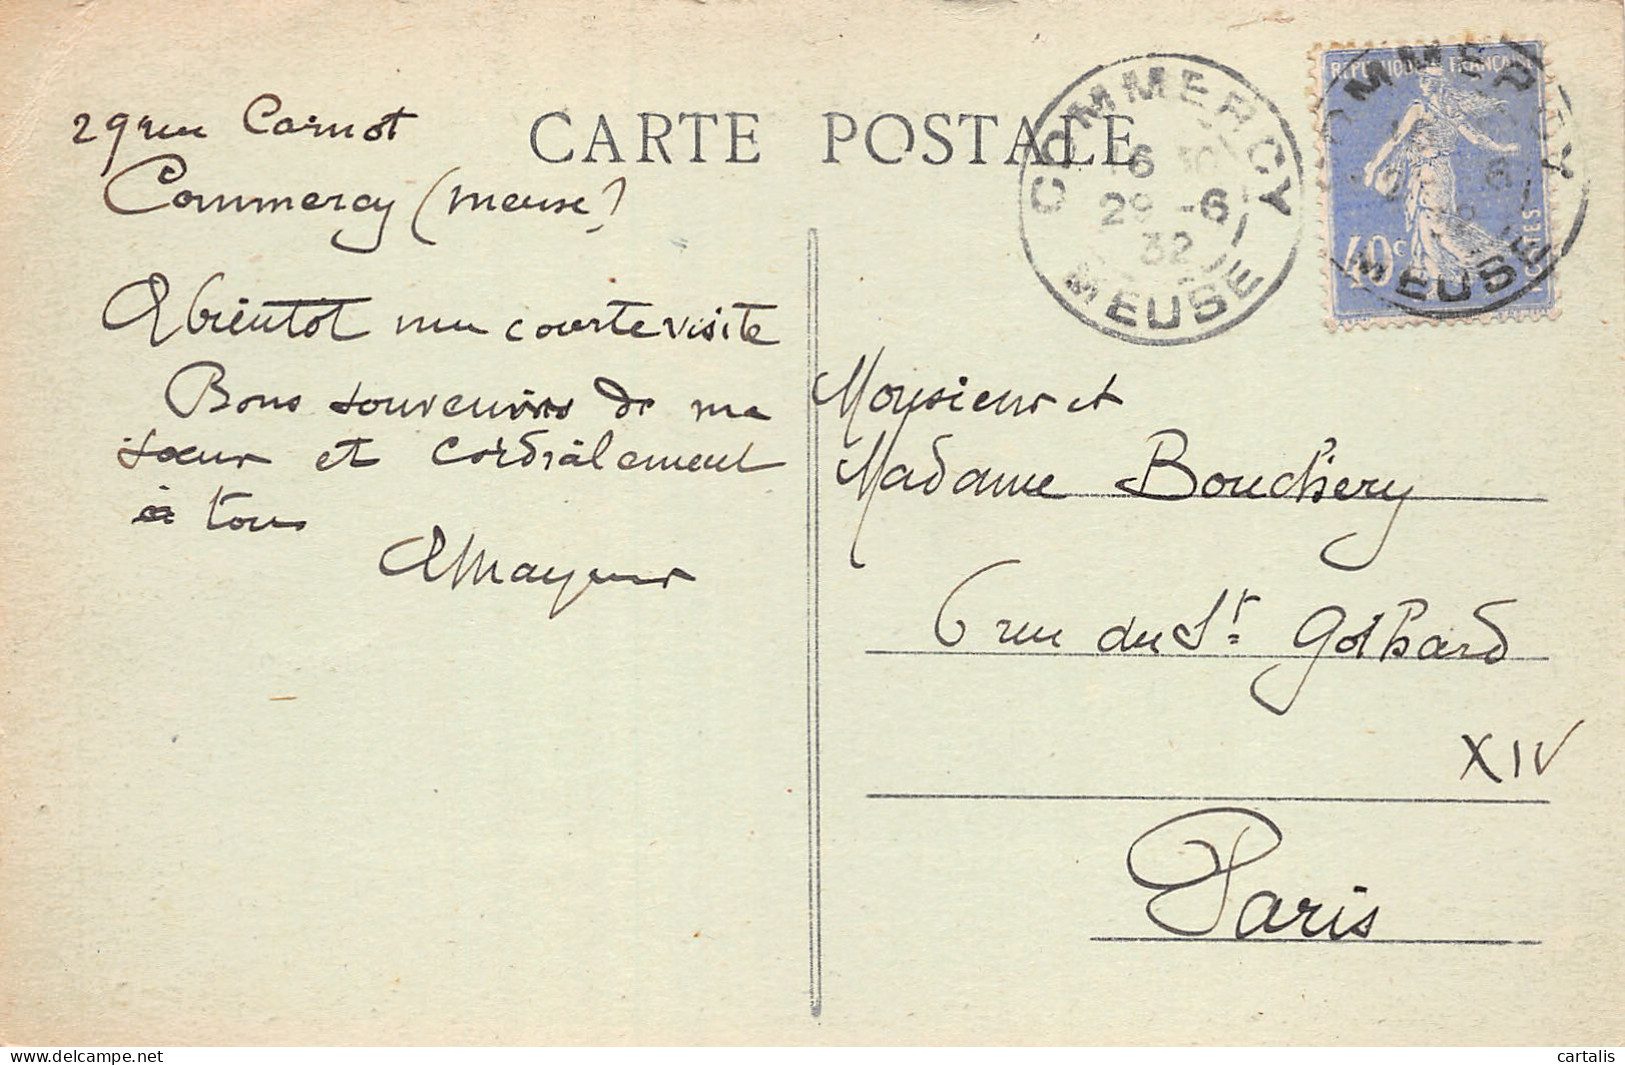 29 rue Carnot
Commercy (Meuse)
A bientôt une courte visite
Bons souvenirs de ma
sœur et cordialement
à tous
A Mayeur
CARTE POSTALE
COMMERCY
16 30
29 -6
32
MEUSE
REPUBLIQUE FRANCAISE
40c
POSTES
COMMERCY
MEUSE
Monsieur et
Madame Bouchery
6 rue du St Gothard
XIV
Paris
delcampe.net
cartalis